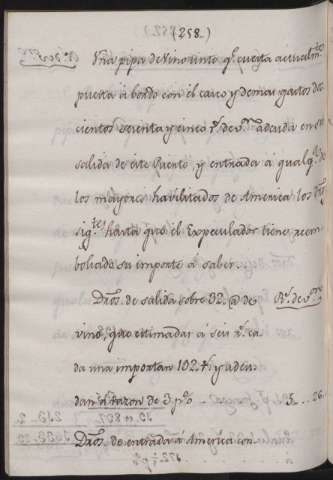 (258.)
Una pipa de Vino tinto q.e cuesta actualm.te
puesta á bordo con el casco y demas gastos dos
cientos sesenta y cinco r.s de v.on adeuda en su
salida de este Puerto, y entrada á qualq.a de
los mayores havilitados de America los dros
sig.tes hasta que el Especulador tiene reem
bolsado su importe á saber.
Dros. de salida sobre 32. @ de R.s de v.on
vino, que estimadas á seis r.s ca
da una importan 192. r.s y adeu
dan á razon de 3 p% 5... 26.
Dros. de entrada á America con